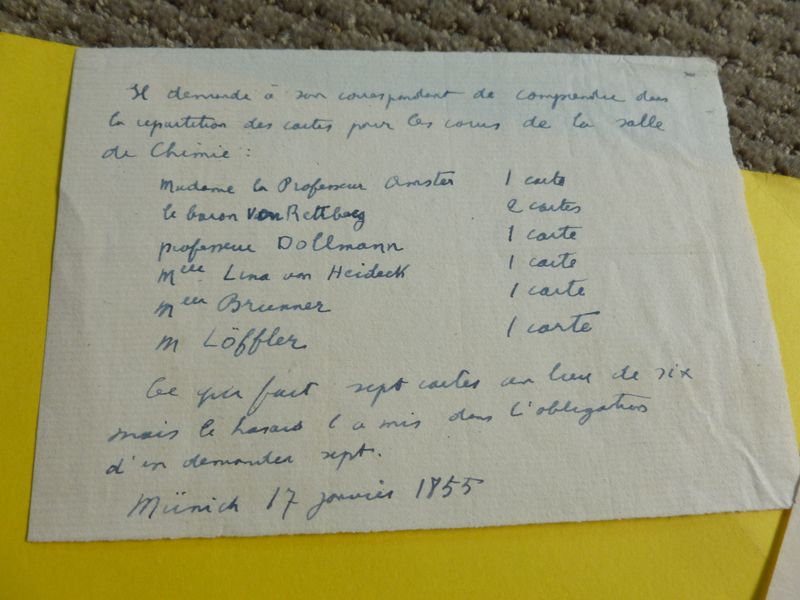 Il demande à son correspondant de comprendre dans
la repartition des cartes pour les cours de la salle
de Chimie :
Madame la Professeur Amster 1 carte
le baron von Rettberg 2 cartes
professeur Dollmann 1 carte
Melle Lina von Heideck 1 carte
Melle Brunner 1 carte
M Löffler 1 carte
Ce qui fait sept cartes au lieu de six
mais le hasard l'a mis dans l'obligation
d'en demander sept.
Münich 17 janvier 1855